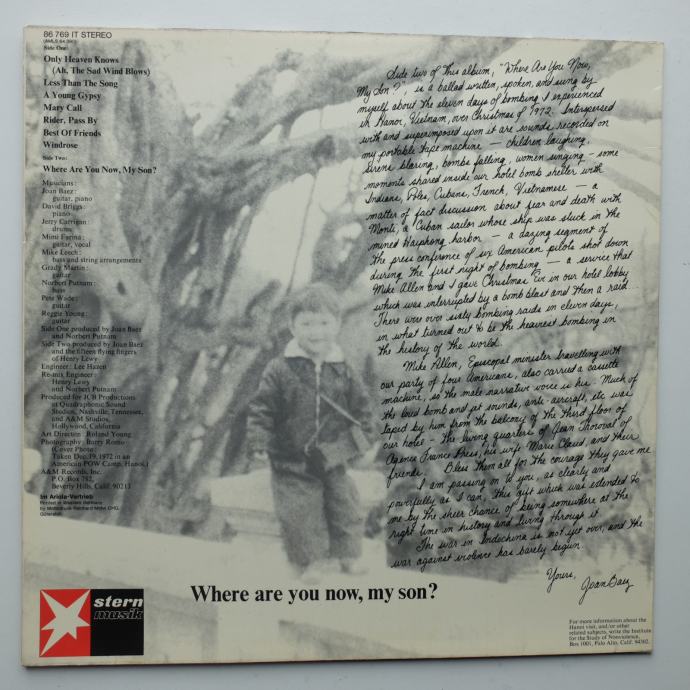 86 769 IT STEREO
Side One:
Only Heaven Knows
(Ah, The Sad Wind Blows)
Less Than The Song
A Young Gypsy
Mary Call
Rider, Pass By
Best Of Friends
Windrose
Side Two:
Where Are You Now, My Son?
Musicians:
Joan Baez:
guitar, piano
David Briggs:
piano
Jerry Carrigan:
drums
Mimi Farina:
guitar, vocal
Mike Leech:
bass and string arrangements
Grady Martin:
guitar
Norbert Putnam:
bass
Pete Wade:
guitar
Reggie Young:
guitar
Side One produced by Joan Baez
and Norbert Putnam
Side Two produced by Joan Baez
and the fifteen flying fingers
of Henry Lewy
Engineer: Lee Hazen
Re-mix Engineer:
Henry Lewy
and Norbert Putnam
Produced for JCB Productions
at Quadraphonic Sound
Studios, Nashville, Tennessee,
and A&M Studios,
Hollywood, California
Art Direction: Roland Young
Photography: Barry Romo
(Cover Photo:
Taken Dec. 19, 1972 in an
American POW Camp, Hanoi.)
A&M Records, Inc.
P.O. Box 782,
Beverly Hills, Calif. 90213
Im Ariola-Vertrieb
Printed in Western Germany
by Mohndruck Reinhard Mohn OHG,
Gütersloh
Side two of this album, "Where Are You Now,
My Son?", is a ballad written, spoken, and sung by
myself about the eleven days of bombing I experienced
in Hanoi, Vietnam, over Christmas of 1972. Interspersed
with and superimposed upon it are sounds recorded on
my portable tape machine — children laughing,
sirens blaring, bombs falling, women singing — some
moments shared inside our hotel bomb shelter with
Indians, Poles, Cubans, French, Vietnamese — a
matter of fact discussion about fear and death with
Monti, a Cuban sailor whose ship was stuck in the
mined Haiphong harbor — a dazing segment of
the press conference of six American pilots shot down
during the first night of bombing — a service that
Mike Allen and I gave Christmas Eve in our hotel lobby
which was interrupted by a bomb blast and then a raid...
There were over sixty bombing raids in eleven days,
in what turned out to be the heaviest bombing in
the history of the world.
Mike Allen, Episcopal minister travelling with
our party of four Americans, also carried a cassette
machine, so the male narrative voice is his. Much of
the loud bomb and jet sounds, anti-aircraft, etc. was
taped by him from the balcony of the third floor of
our hotel - the living quarters of Jean Thoraval of
Agence France Press, his wife Marie Claud, and their
friends. Bless them all for the courage they gave me.
I am passing on to you, as clearly and
powerfully as I can, this gift which was extended to
me by the sheer chance of being somewhere at the
right time in history and living through it.
The war in Indochina is not yet over, and the
war against violence has barely begun.
Yours,
Joan Baez
Where are you now, my son?
stern
musik
For more information about the
Hanoi visit, and/or other
related subjects, write the Institute
for the Study of Nonviolence,
Box 1001, Palo Alto, Calif. 94302.